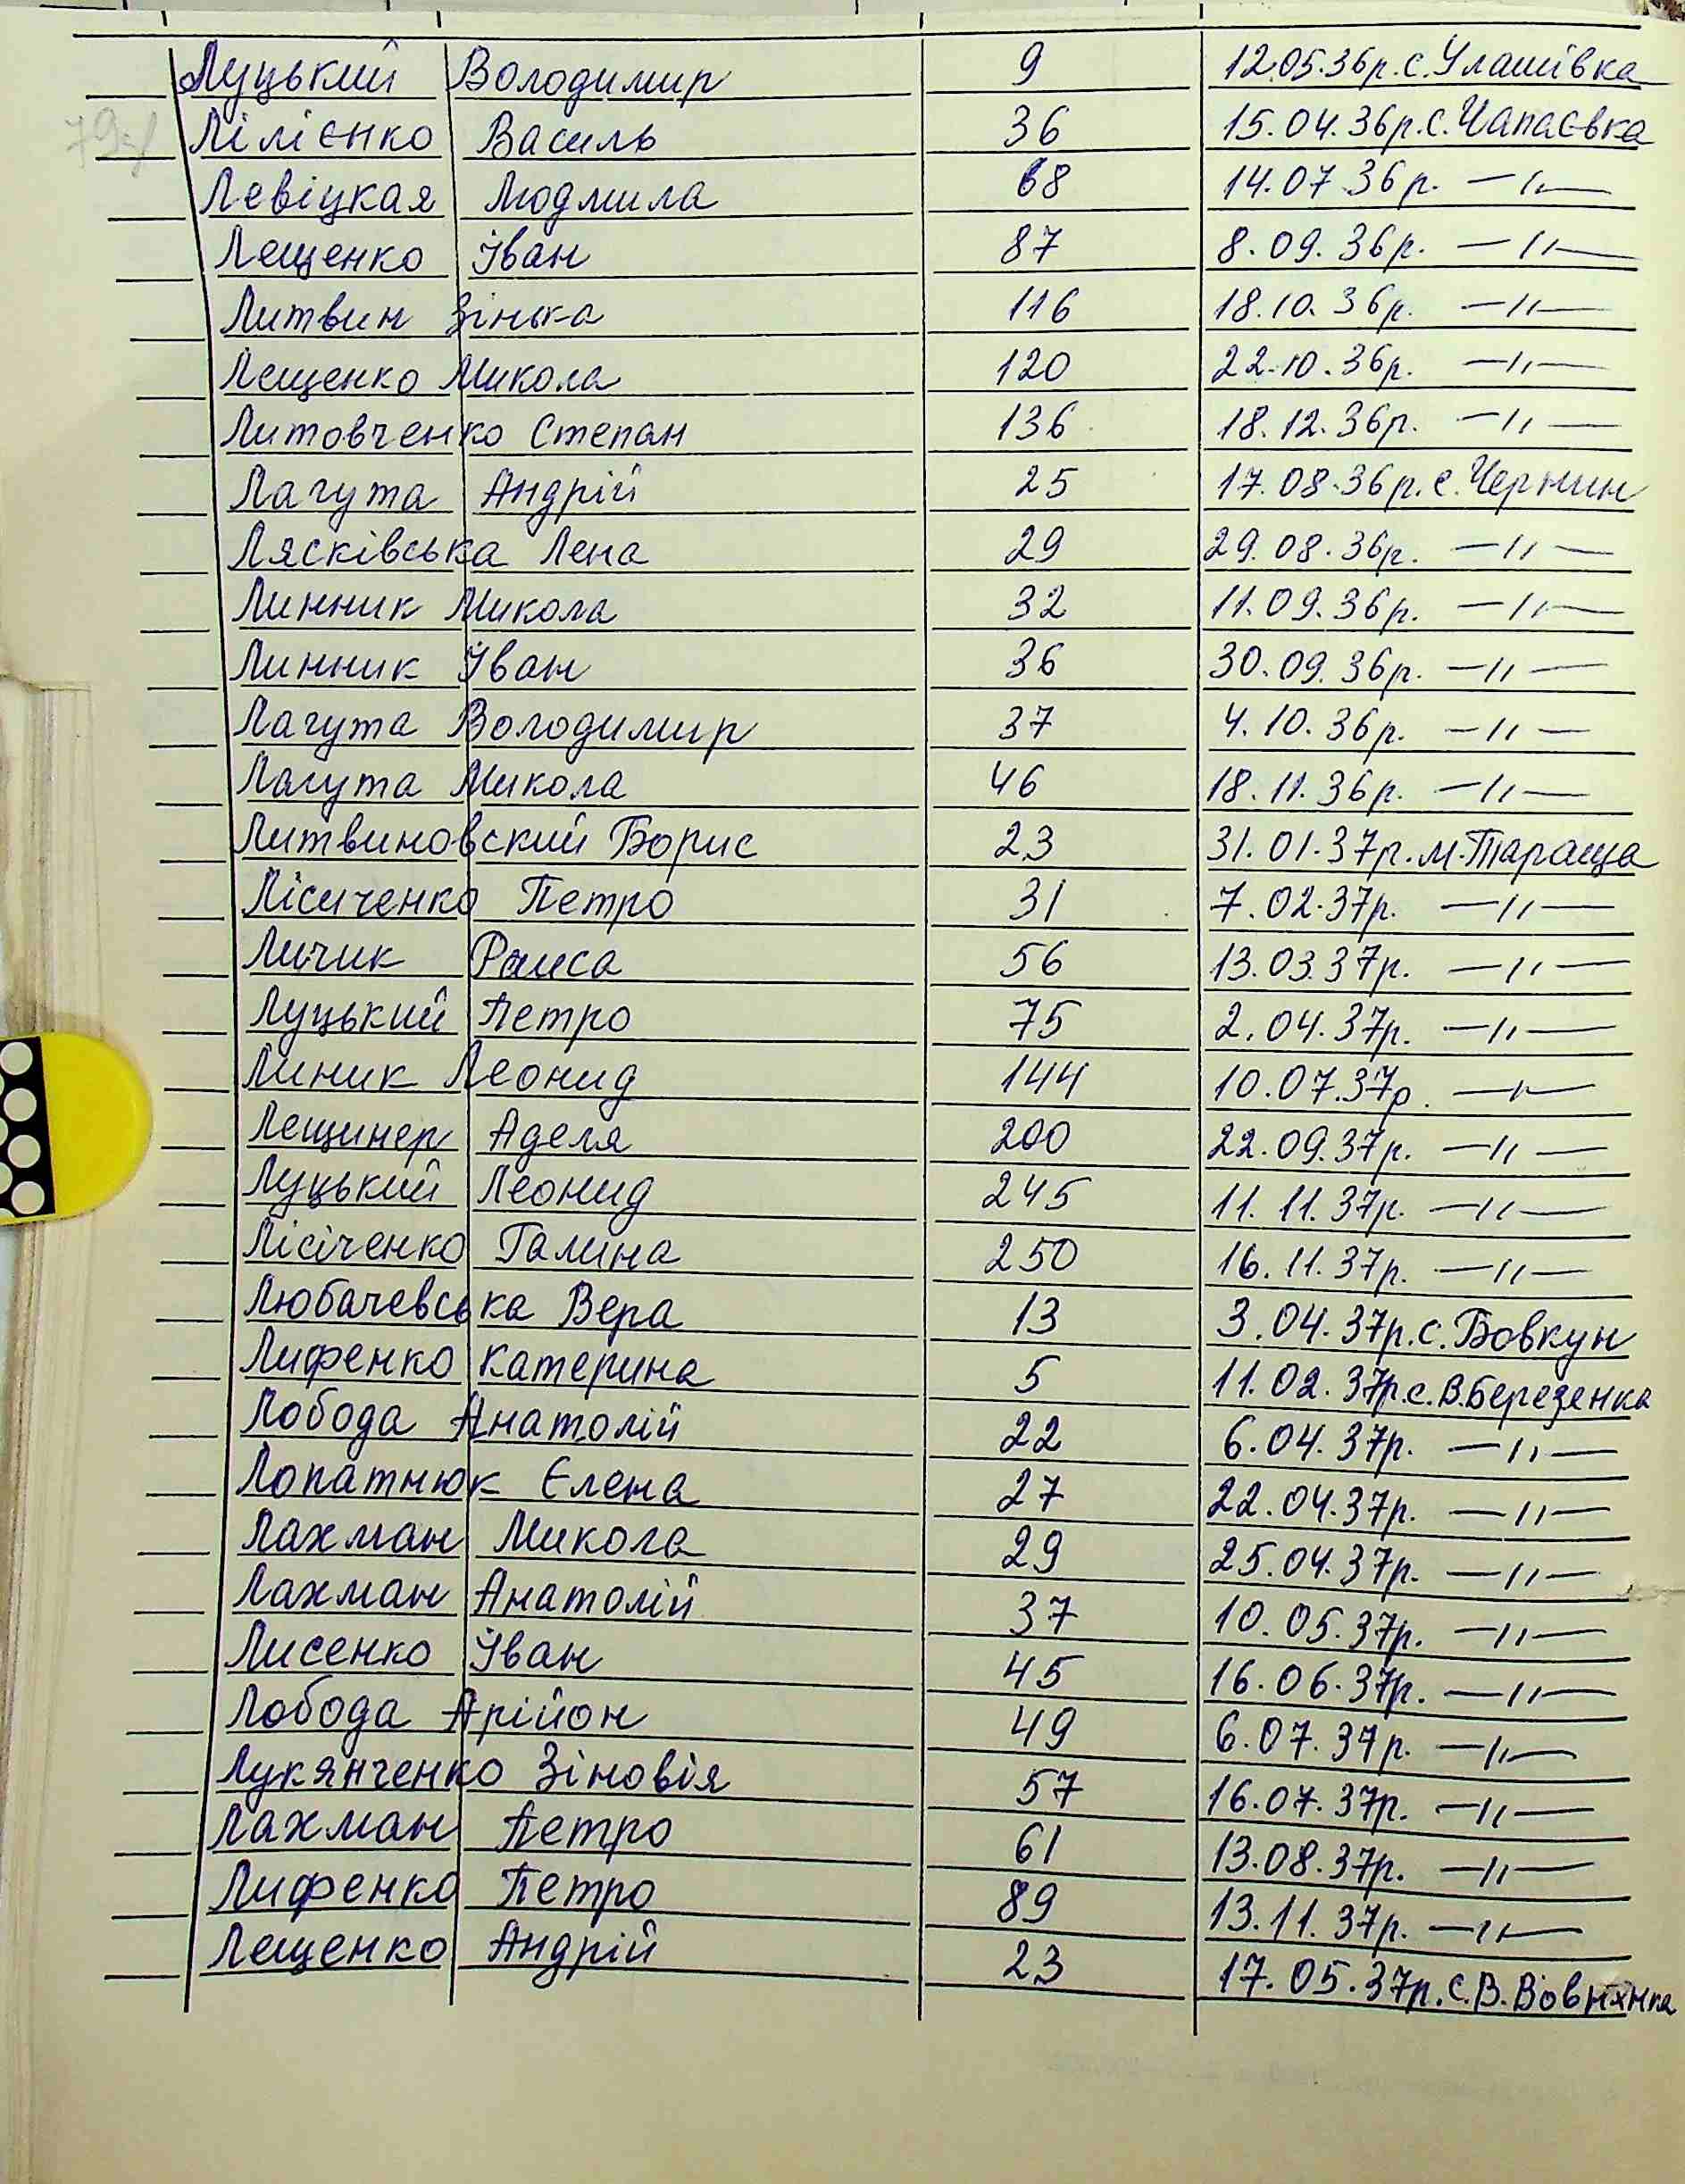 Луцький Володимир 9 12.05.36р. с. Улашівка
Лілієнко Василь 36 15.04.36р. с. Чапаєвка
Левіцкая Людмила 68 14.07.36р. —〃—
Лещенко Іван 87 8.09.36р. —〃—
Литвин Зінька 116 18.10.36р. —〃—
Лещенко Микола 120 22.10.36р. —〃—
Литовченко Степан 136 18.12.36р. —〃—
Лагута Андрій 25 17.08.36р. с. Чернин
Лясківська Лена 29 29.08.36р. —〃—
Линник Микола 32 11.09.36р. —〃—
Линник Іван 36 30.09.36р. —〃—
Лагута Володимир 37 4.10.36р. —〃—
Лагута Микола 46 18.11.36р. —〃—
Литвиновский Борис 23 31.01.37р. м. Тараща
Лісиченко Петро 31 7.02.37р. —〃—
Личик Раиса 56 13.03.37р. —〃—
Луцький Петро 75 2.04.37р. —〃—
Линик Леонид 144 10.07.37р. —〃—
Лещинер Аделя 200 22.09.37р. —〃—
Луцький Леонид 245 11.11.37р. —〃—
Лісіченко Галина 250 16.11.37р. —〃—
Любачевська Вера 13 3.04.37р. с. Бовкун
Лифенко Катерина 5 11.02.37р. с. В. Березенка
Лобода Анатолій 22 6.04.37р. —〃—
Лопатнюк Єлена 27 22.04.37р. —〃—
Лахман Микола 29 25.04.37р. —〃—
Лахман Анатолій 37 10.05.37р. —〃—
Лисенко Іван 45 16.06.37р. —〃—
Лобода Арійон 49 6.07.37р. —〃—
Лукянченко Зіновія 57 16.07.37р. —〃—
Лахман Петро 61 13.08.37р. —〃—
Лифенко Петро 89 13.11.37р. —〃—
Лещенко Андрій 23 17.05.37р. с. В.